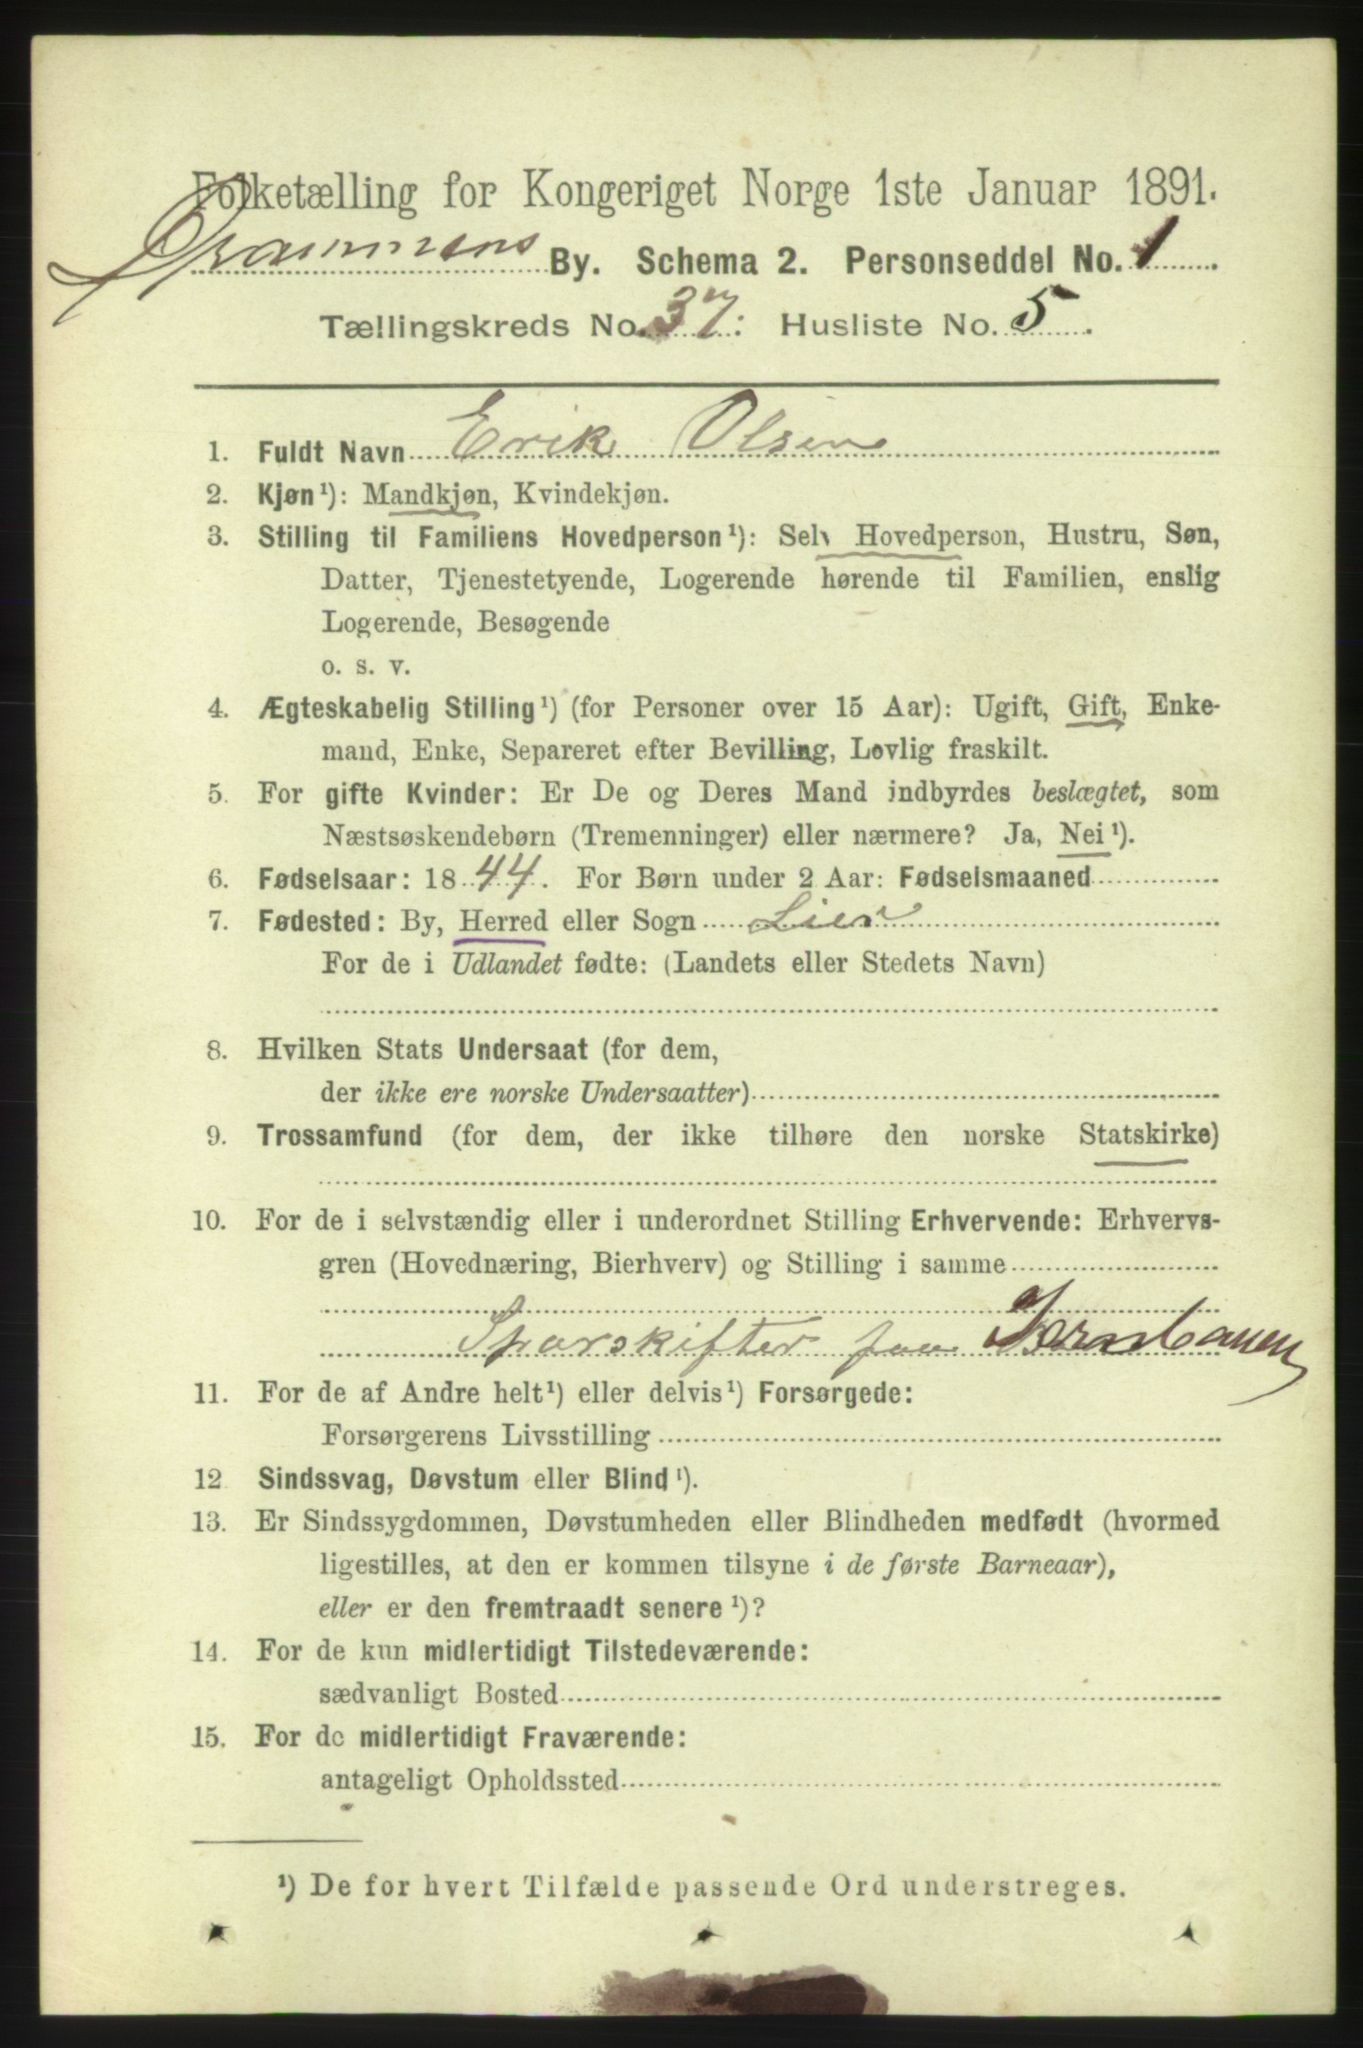 Folketælling for Kongeriget Norge 1ste Januar 1891.
Drammens By. Schema 2. Personseddel No. 1
Tællingskreds No. 37. Husliste No. 5.
1. Fuldt Navn Erik Olsen
2. Kjøn¹): Mandkjøn, Kvindekjøn.
3. Stilling til Familiens Hovedperson¹): Selv Hovedperson, Hustru, Søn,
Datter, Tjenestetyende, Logerende hørende til Familien, enslig
Logerende, Besøgende
o. s. v.
4. Ægteskabelig Stilling¹) (for Personer over 15 Aar): Ugift, Gift, Enke-
mand, Enke, Separeret efter Bevilling, Lovlig fraskilt.
5. For gifte Kvinder: Er De og Deres Mand indbyrdes beslægtet, som
Næstsøskendebørn (Tremenninger) eller nærmere? Ja, Nei¹).
6. Fødselsaar: 1844. For Børn under 2 Aar: Fødselsmaaned
7. Fødested: By, Herred eller Sogn Lier
For de i Udlandet fødte: (Landets eller Stedets Navn)
8. Hvilken Stats Undersaat (for dem,
der ikke ere norske Undersaatter)
9. Trossamfund (for dem, der ikke tilhøre den norske Statskirke)
10. For de i selvstændig eller i underordnet Stilling Erhvervende: Erhvervs-
gren (Hovednæring, Bierhverv) og Stilling i samme
Sporskifter paa Jernbanen
11. For de af Andre helt¹) eller delvis¹) Forsørgede:
Forsørgerens Livsstilling
12 Sindssvag, Døvstum eller Blind¹).
13. Er Sindssygdommen, Døvstumheden eller Blindheden medfødt (hvormed
ligestilles, at den er kommen tilsyne i de første Barneaar),
eller er den fremtraadt senere¹)?
14. For de kun midlertidigt Tilstedeværende:
sædvanligt Bosted
15. For de midlertidigt Fraværende:
antageligt Opholdssted
¹) De for hvert Tilfælde passende Ord understreges.